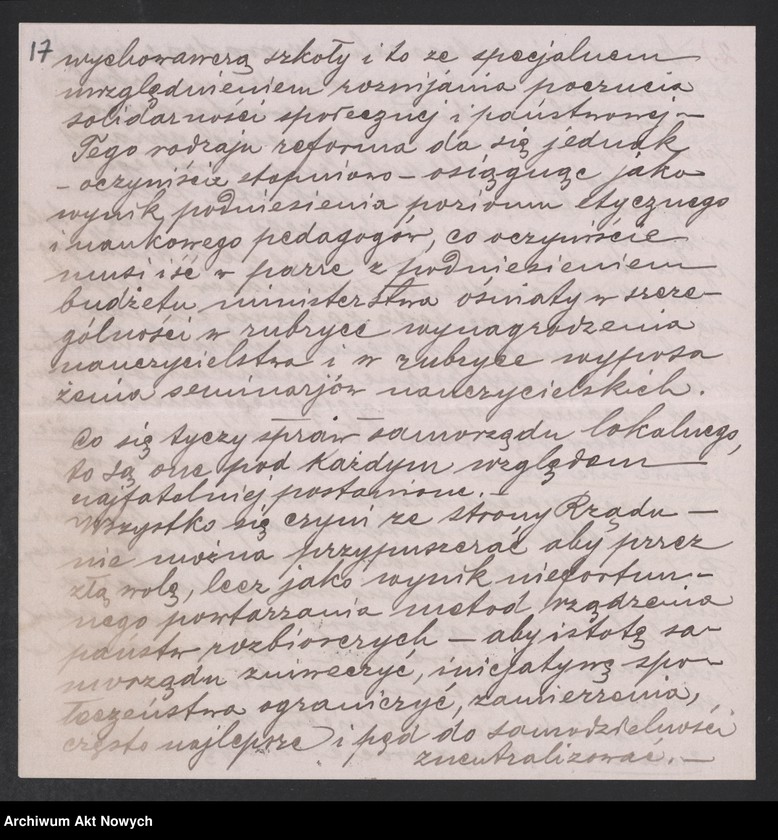 17 wychowawczą szkoły i to ze specjalnem
uwzględnieniem rozwijania poczucia
solidarności społecznej i państwowej. —
Tego rodzaju reforma da się jednak
– oczywiście stopniowo – osiągnąć jako
wynik podniesienia poziomu etycznego
i naukowego pedagogów, co oczywiście
musi iść w parze z podniesieniem
budżetu ministerstwa oświaty w szcze-
gólności w rubryce wynagrodzenia
nauczycielstwa i w rubryce wyposa
żenia seminarjów nauczycielskich.
Co się tyczy spraw samorządu lokalnego,
to są one pod każdym względem
najfatalniej postawione. –
Wszystko się czyni ze strony Rządu —
nie można przypuszczać aby przez
złą wolę, lecz jako wynik niefortun-
nego powtarzania metod rządzenia
państw rozbiorczych — aby istotę sa-
morządu zniweczyć, inicjatywę spo-
łeczeństwa ograniczyć, zamierzenia,
często najlepsze i pęd do samodzielności
zneutralizować. —
Archiwum Akt Nowych